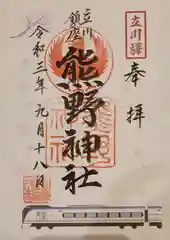 立川驛
奉拝
立川
鎮座
熊野神社
令和三年九月十八日